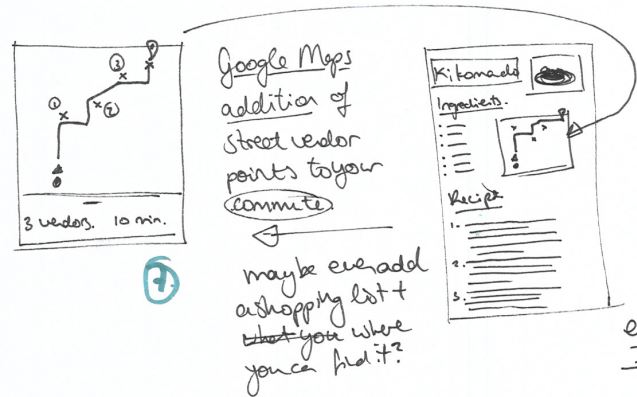 ①
②
③
3 vendors. 10 min.
7.
Google Maps
addition of
street vendor
points to your
commute
maybe even add
a shopping list +
what you where
you can find it?
Kikomado
Ingredients.
Recipe
1.
2.
3.